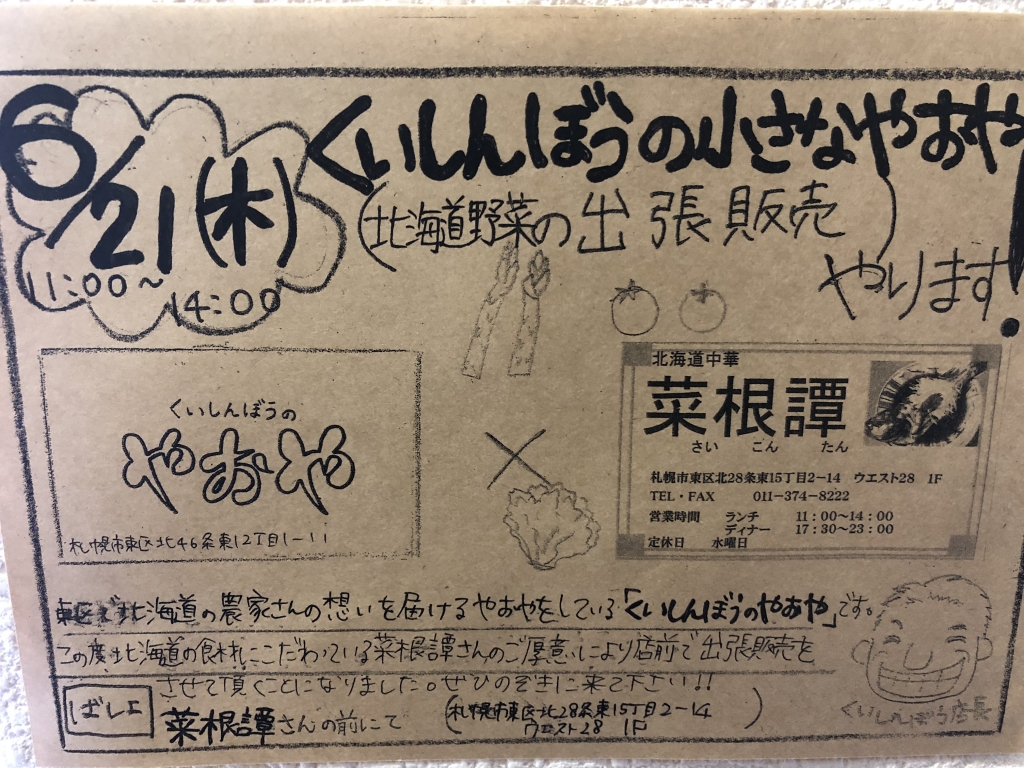 6/21(木)
11:00〜
14:00
くいしんぼうの小さなやおや!
(北海道野菜の出張販売)
やります
くいしんぼうの
やおや
札幌市東区北46条東12丁目1-11
×
北海道中華
菜根譚
さい こん たん
札幌市東区北28条東15丁目2-14 ウエスト28 1F
TEL・FAX 011-374-8222
営業時間 ランチ 11:00〜14:00
ディナー 17:30〜23:00
定休日 水曜日
東区で北海道の農家さんの想いを届けるやおやをしている「くいしんぼうのやおや」です。
この度北海道の食材にこだわっている菜根譚さんのご厚意により店前で出張販売を
させて頂くことになりました。ぜひのぞきに来て下さい!!
ばしょ
菜根譚さんの前にて
(札幌市東区北28条東15丁目2-14
ウエスト28 1F)
くいしんぼう店長